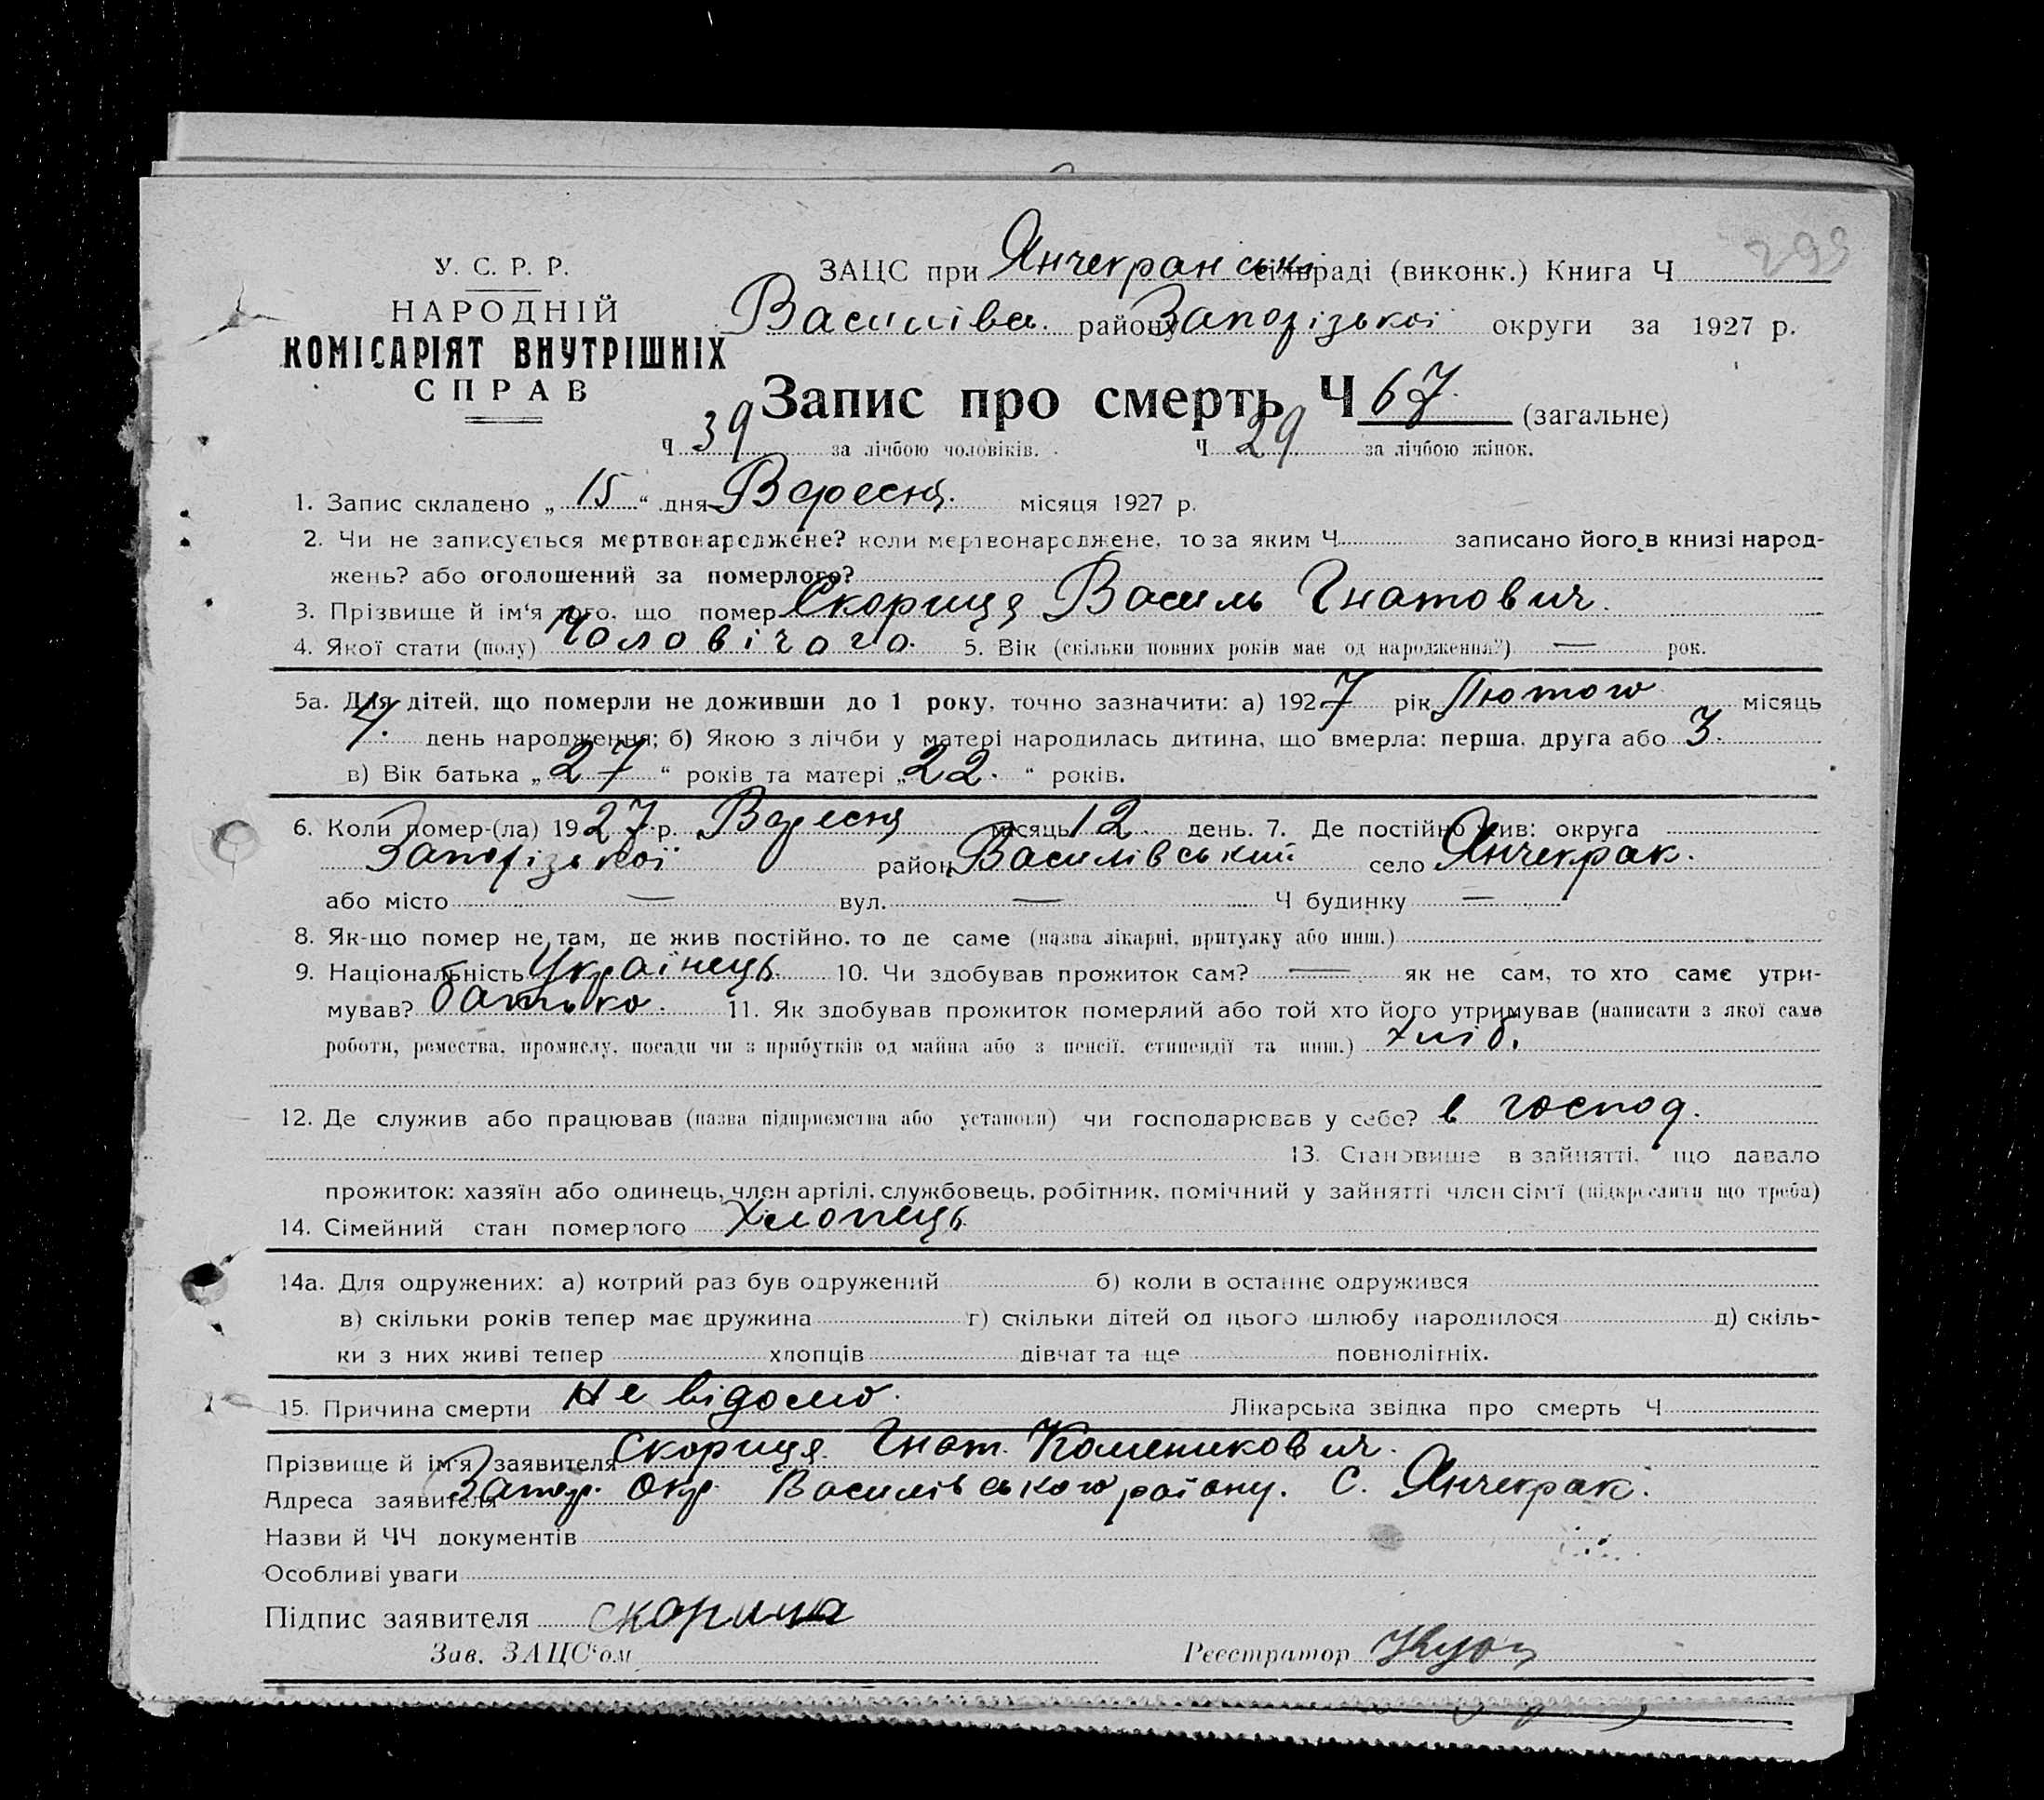 299
У. С. Р. Р.
НАРОДНІЙ
КОМІСАРІЯТ ВНУТРІШНІХ
СПРАВ
ЗАЦС при Янчекранські сільраді (виконк.) Книга Ч
Василівсь. району Запорізької округи за 1927 р.
Запис про смерть Ч 67. (загальне)
Ч 39 за лічбою чоловіків. Ч 29 за лічбою жінок.
1. Запис складено „ 15 “ дня Вересня. місяця 1927 р.
2. Чи не записується мертвонароджене? коли мертвонароджене, то за яким Ч записано його в книзі народ-
жень? або оголошений за померлого?
3. Прізвище й ім‘я того, що помер Скориця Василь Гнатович.
4. Якої стати (полу) Чоловічого. 5. Вік (скільки повних років має од народження?) — рок.
5а. Для дітей, що померли не доживши до 1 року, точно зазначити: а) 1927 рік Лютого місяць
4. день народження; б) Якою з лічби у матері народилась дитина, що вмерла: перша, друга або 3.
в) Вік батька „ 27 “ років та матері „ 22. “ років.
6. Коли помер-(ла) 1927 р. Вересня місяць 12. день. 7. Де постійно жив: округа
Запорізької район Василівський село Янчекрак.
або місто — вул. — Ч будинку —
8. Як-що помер не там, де жив постійно, то де саме (назва лікарні, притулку або инш.)
9. Національність Українець. 10. Чи здобував прожиток сам? — як не сам, то хто саме утри-
мував? батько. 11. Як здобував прожиток померлий або той хто його утримував (написати з якої саме
роботи, ремества, промислу, посади чи з прибутків од майна або з пенсії, стипендії та инш.) хліб.
12. Де служив або працював (назва підприємства або установи) чи господарював у себе? в господ.
13. Становище в зайнятті, що давало
прожиток: хазяїн або одинець, член артілі, службовець, робітник, помічний у зайнятті член сім‘ї (підкреслити що треба)
14. Сімейний стан померлого Хлопець
14а. Для одружених: а) котрий раз був одружений б) коли в останнє одружився
в) скільки років тепер має дружина г) скільки дітей од цього шлюбу народилося д) скіль-
ки з них живі тепер хлопців дівчат та ще повнолітніх.
15. Причина смерти не відомо. Лікарська звідка про смерть Ч
Прізвище й ім‘я заявителя Скориця Гнат
Адреса заявителя Запор. Окр. Василівського району. С. Янчекрак.
Назви й ЧЧ документів
Особливі уваги
Підпис заявителя скорица
Зав. ЗАЦС‘ом Реєстратор